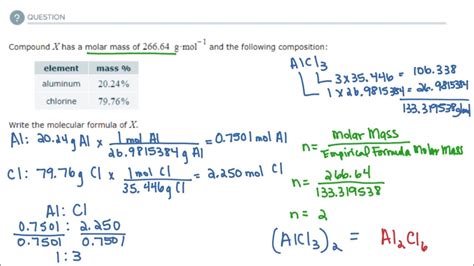 ? QUESTION
Compound X has a molar mass of 266.64 g·mol⁻¹ and the following composition:
element mass %
aluminum 20.24%
chlorine 79.76%
Write the molecular formula of X.
Al: 20.24g Al x 1 mol Al / 26.9815384 g Al = 0.7501 mol Al
Cl: 79.76g Cl x 1 mol Cl / 35.446g Cl = 2.250 mol Cl
Al : Cl
0.7501 : 2.250
0.7501 0.7501
1 : 3
AlCl₃
3 x 35.446 = 106.338
1 x 26.9815384 = 26.9815384
133.319538 g/mol
n = Molar Mass / Empirical Formula Molar Mass
n = 266.64 / 133.319538
n = 2
(AlCl₃)₂ = Al₂Cl₆